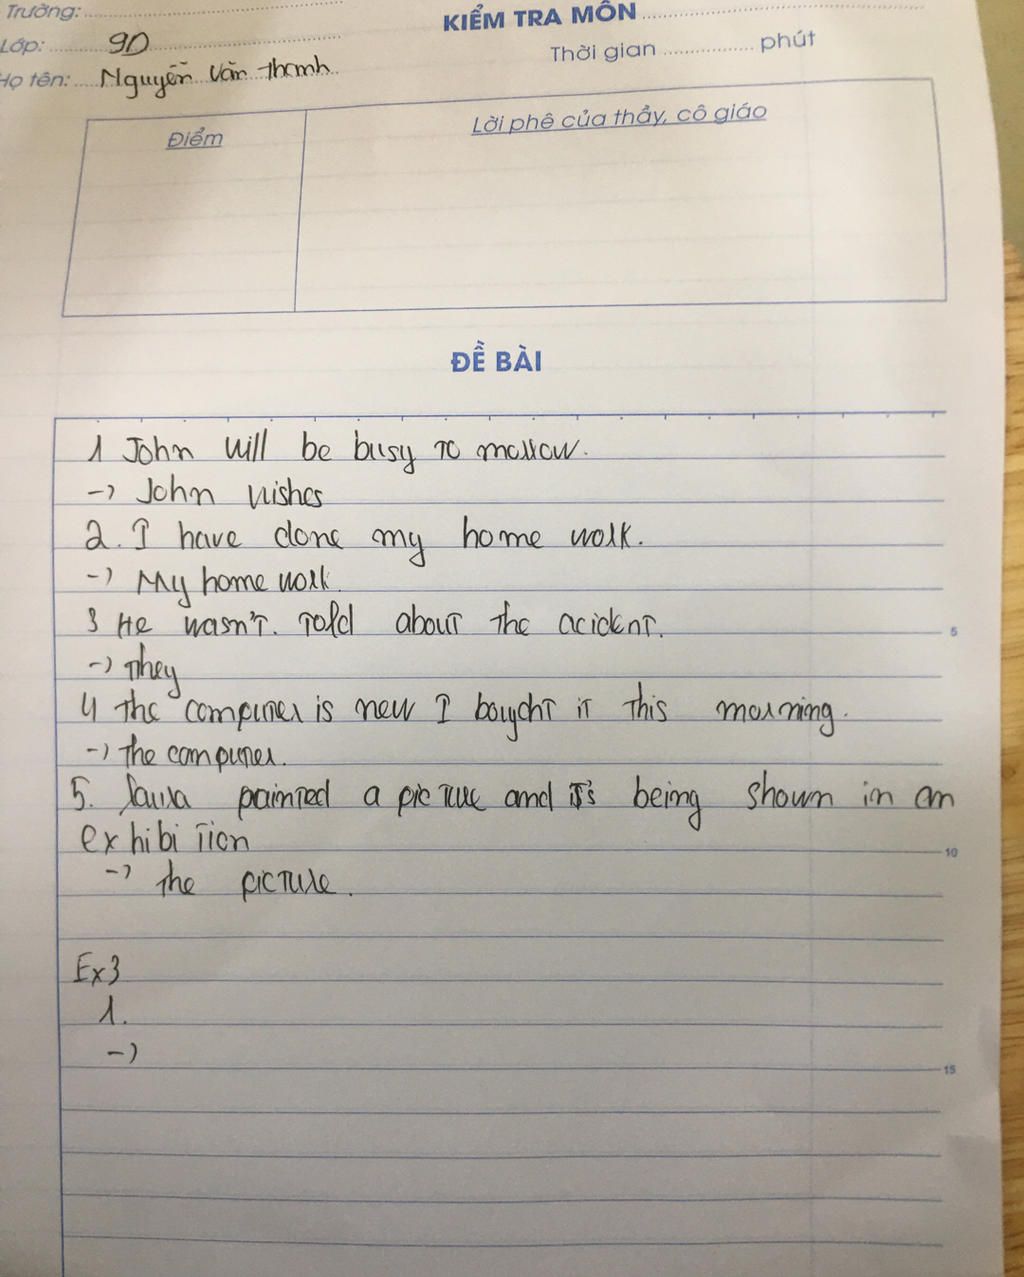 Trường:
Lớp: 9D
Họ tên: Nguyễn Văn Thanh
KIỂM TRA MÔN
Thời gian phút
Điểm
Lời phê của thầy, cô giáo
ĐỀ BÀI
1 John will be busy to morrow.
-> John wishes
2. I have done my home work.
-> My home work.
3 He wasn't. Told about the acident.
-> They
4 the computer is new I bought it this morning.
-> the computer.
5. Laura painted a pic ture and it's being shown in an
ex hi bi tion
-> the picture.
Ex3
1.
->
5
10
15